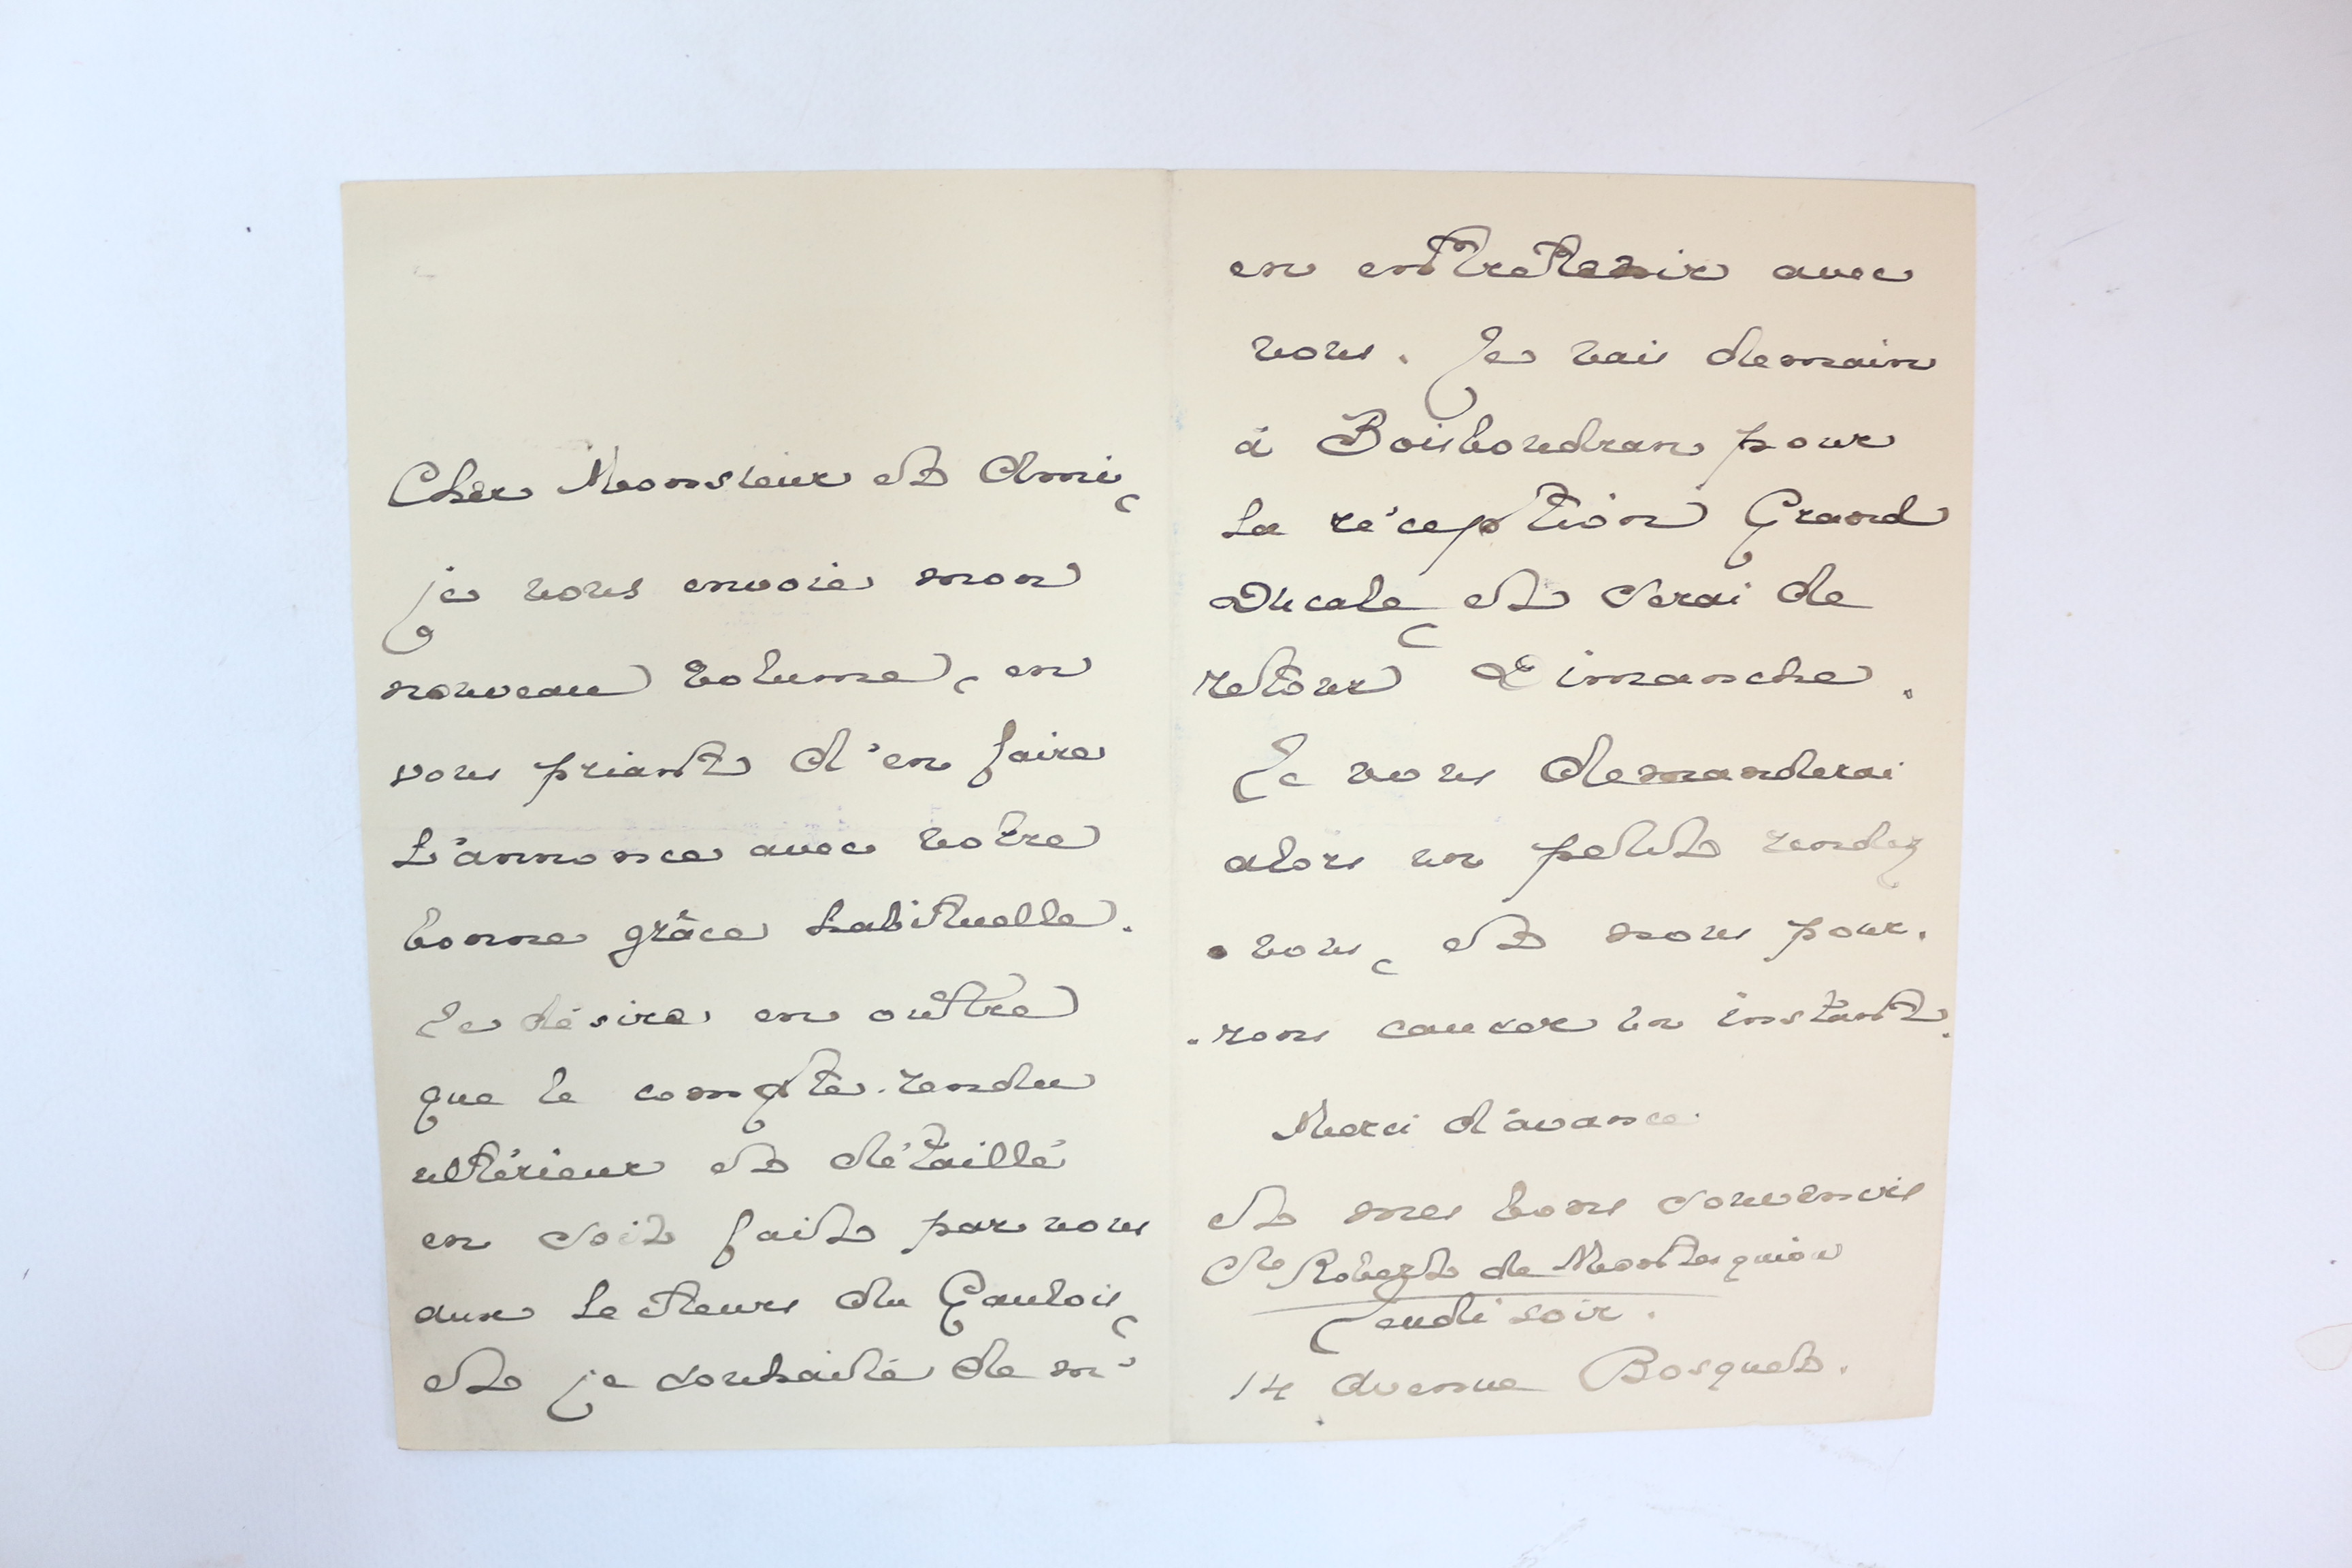 Cher Monsieur et Ami,
je vous envoie mon
nouveau volume, en
vous priant d'en faire
l'annonce avec votre
bonne grâce habituelle.
Je désire en outre
que le compte-rendu
ultérieur et détaillé
en soit fait par vous
aux lecteurs du Gaulois,
et je souhaite de m'
en entretenir avec
vous. Je vais demain
à Boisboudran pour
la réception Grand
Ducale, et serai de
retour Dimanche.
Je vous demanderai
alors un petit rendez
-vous, et nous pour-
-rons causer un instant.
Merci d'avance
et mes bons souvenirs
de Robert de Montesquiou
Jeudi soir.
14 avenue Bosquet.